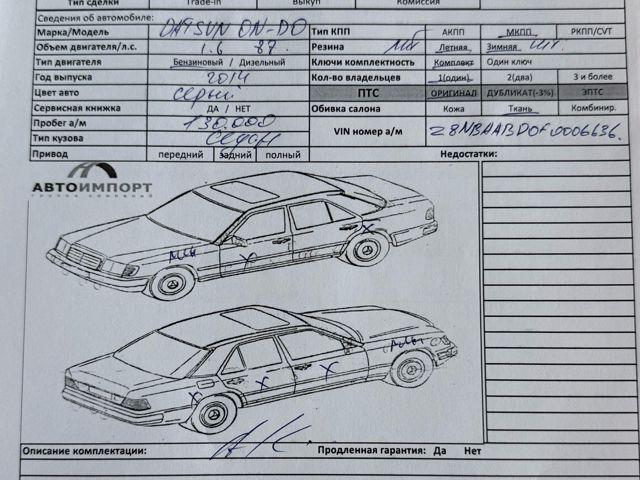 Тип сделки Trade-in Выкуп Комиссия
Сведения об автомобиле:
Марка/Модель DATSUN ON-DO Тип КПП АКПП МКПП РКПП/CVT
Объем двигателя/л.с. 1.6 87. Резина Летная Зимняя шт.
Тип двигателя Бензиновый / Дизельный Ключи комплектность Комплект Один ключ
Год выпуска 2014 Кол-во владельцев 1(один) 2(два) 3 и более
Цвет авто Серый ПТС ОРИГИНАЛ ДУБЛИКАТ(-3%) ЭПТС
Сервисная книжка ДА / НЕТ Обивка салона Кожа Ткань Комбинир.
Пробег а/м 130.000 VIN номер а/м
Тип кузова Седан
Привод передний задний полный Недостатки:
АВТОИМПОРТ
группа компаний
Описание комплектации: А/С. Продленная гарантия: Да Нет